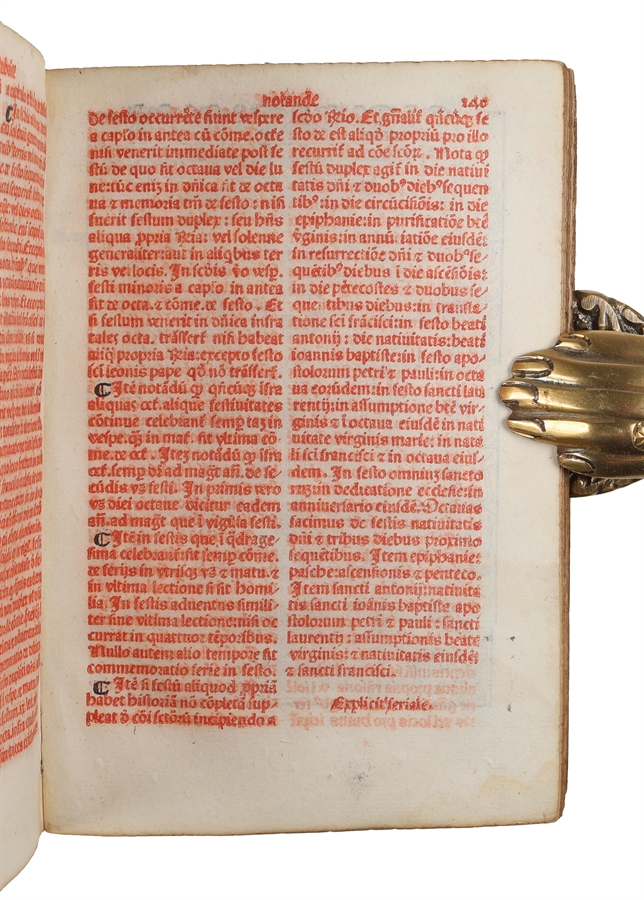 notande 240
de festo occurrēte fiunt vespere
a capľo in antea cū cōme. octē
nisi venerit immediate post fe
stū de quo fit octaua vel die lu
ne: tūc eniz in dn̄ica fit de octa
ua ⁊ memoria tm̄ de festo: nisi
fuerit festum duplex: seu hn̄s
aliqua ꝓpria: vel solenne
generaliter: aut in aliqbus ter
ris vel locis. In scd̄is ꝟo vesp.
festi minoris a capľo in antea
fit de octa. ⁊ cōme. de festo. Et
si festum venerit in dn̄ica infra
tales octa. trāsfert̄ nisi habeat
aliq̄ propria: excepto festo
sci leonis pape qd̄ nō trāsfert̄.
¶ Itē notādū ꝙ qn̄cūqꝫ īfra
aliquas octē. alique festiuitates
cōtinue celebrant̄ semp tam in
vespe. qꝫ in mat. fit vltima cō
me. de octē. Itez notādū ꝙ īfra
octē. semp dr̄ ad magt̄ an̄. de se
cūdis ꝟs festi. In primis vero
ꝟs diei octaue dicitur eadem
an̄. ad magt̄ que ī vigilia festi.
¶ Itē in festis que ī qͣdrage
sima celebrant̄ fit semp cōme.
de ferijs in vtrisqꝫ vs̄ ⁊ matu. ⁊
in vltima lectione fit de homi
lia. In festis aduentus simili
ter sine vltima lectione: nisi oc
currat in quattuor tēporibus.
Nullo autem alio tempore fit
commemoratio ferie in festo.
¶ Itē si festū aliquod ꝓpriā
habet historiā nō cōpletā sup
pleat̄ d̄ cōi sctōrū incipiendo a
scd̄o. Et gn̄alit̄ qn̄cūqꝫ fe
sto dēest aliqd̄ propriū pro illo
recurrit̄ ad cōe scōꝝ. Nota ꝙ
festū duplex agit̄ in die natiui
tatis dn̄i ⁊ duob⁹ dieb⁹ sequen
tib⁹: in die circūcisiōis: in die
epiphanie: in purificatiōe btē
ꝟginis: in annūtiatiōe eiusdē:
in resurrectiōe dn̄i ⁊ duob⁹ se-
quētib⁹ diebus ī die ascēsiōis:
in die pētecostes ⁊ duobus se
quentibus diebus: in transla-
tione sci frācisci: in festo beati
antonij: die natiuitatis: beati
ioannis baptiste: in festo apo-
stolorum petri ⁊ pauli: in octa
ua eorūdem: in festo sancti lau
rentij: in assumptione btē vir-
ginis ⁊ ī octaua eiusdē in nati
uitate virginis marie: in nata
li sci frācisci ⁊ in octaua eius-
dem. In festo omniuꝫ sancto
ruꝫ: in dedicatione ecclesie: in
anniuersario eiusdē. Octauas
facimus de festis natiuitatis
dn̄i ⁊ tribus diebus proximo
sequētibus. Item epiphanie:
pasche: ascensionis ⁊ penteco.
Item sancti antonij: natiuita
tis sancti ioānis baptiste apo
stolorum petri ⁊ pauli: sancti
laurentij: assumptionis beate
virginis: ⁊ natiuitatis eiusdē:
⁊ sancti francisci.
Explicit feriale.